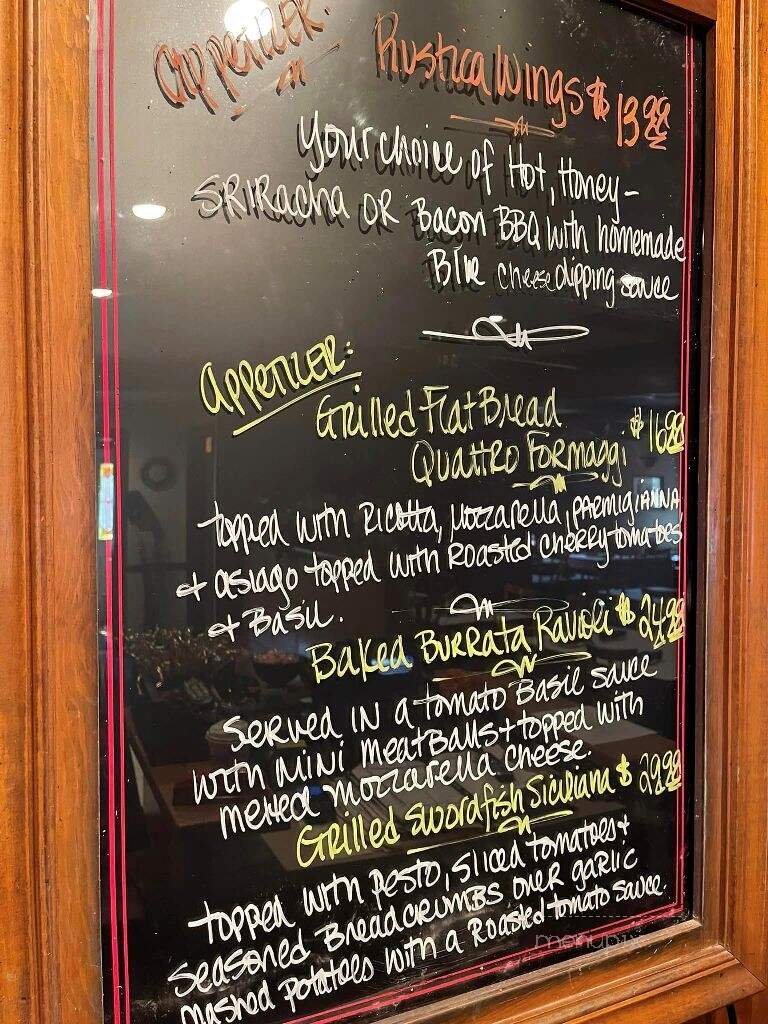 Appetizer:
Rustica Wings $13.99
Your choice of Hot, Honey-
SRIRacha OR Bacon BBQ with homemade
Blue cheese dipping sauce
Appetizer:
Grilled Flat Bread
Quattro Formaggi $16.99
topped with Ricotta, Mozzarella, Parmigianna
+ asiago topped with Roasted cherry tomatoes
+ Basil.
Baked Burrata Ravioli $24.99
Served in a tomato Basil sauce
with mini meatBalls + topped with
melted mozzarella cheese.
Grilled Swordfish Siciliana $29.99
topped with pesto, sliced tomatoes +
seasoned Breadcrumbs over garlic
mashed potatoes with a Roasted tomato sauce.
menupix